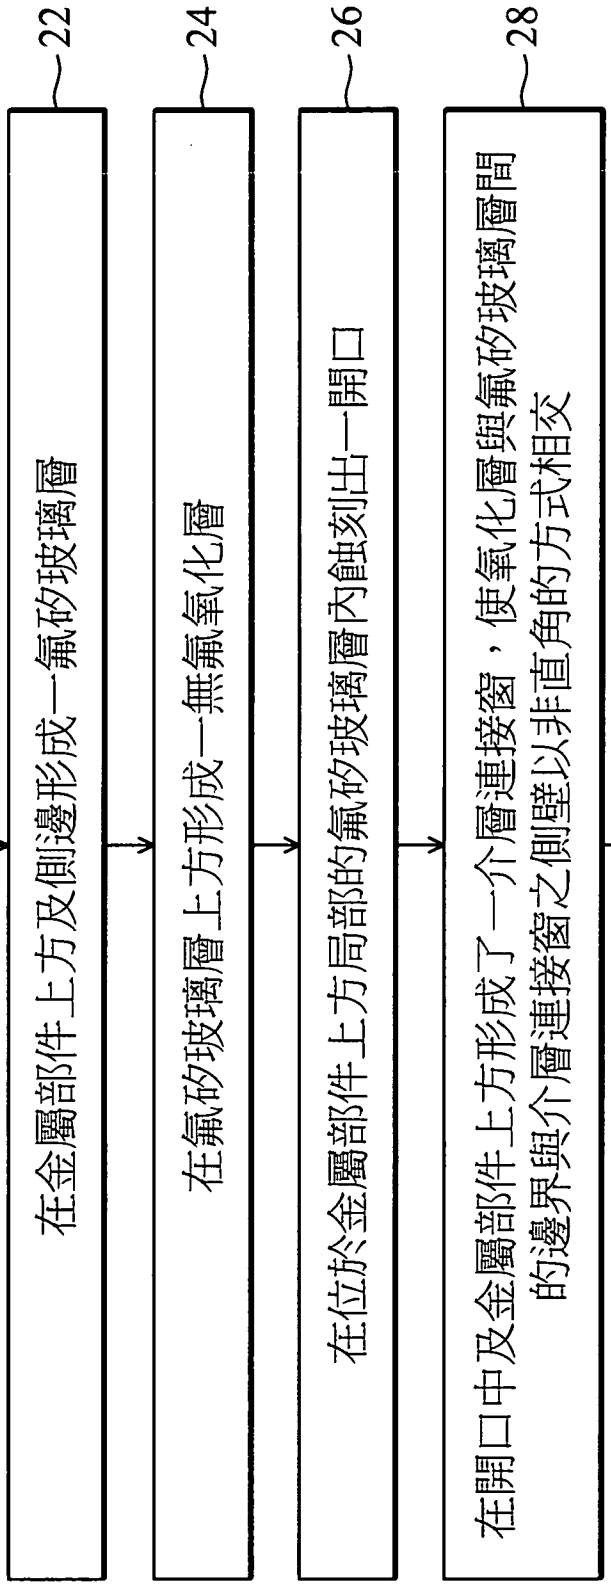 在金屬部件上方及側邊形成一氟矽玻璃層
22
在氟矽玻璃層上方形成一無氟氧化層
24
在位於金屬部件上方局部的氟矽玻璃層內蝕刻出一開口
26
在開口中及金屬部件上方形成了一介層連接窗，使氧化層與氟矽玻璃層間
的邊界與介層連接窗之側壁以非直角的方式相交
28